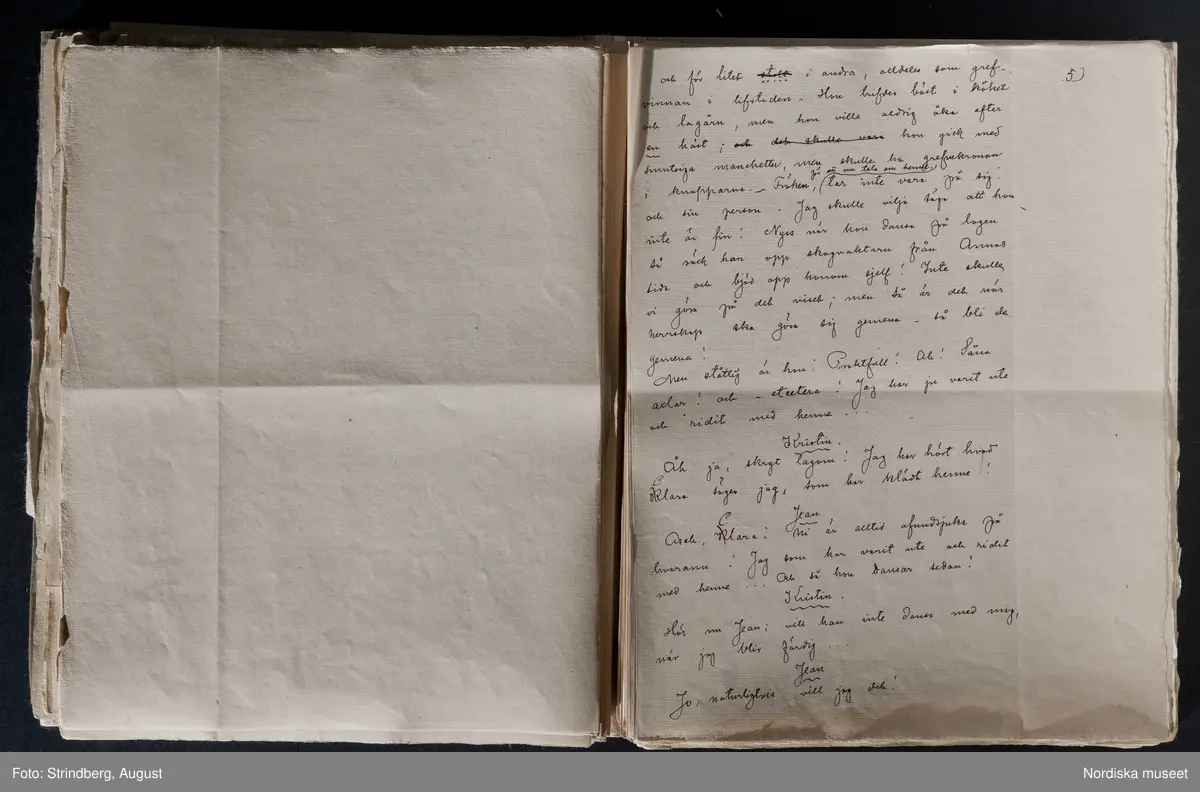 5)
och för litet stolt i andra, alldeles som gref-
vinnan i lifstiden. Hon trifdes bäst i köket
och lagårn, men hon ville aldrig åka efter
en häst; och det skulle vara hon gick med
smutsiga manchetter, men skulle ha grefvekronan
i knapparna. – Fröken, så nu tala om henne, tar inte vara på sig
och sin person. Jag skulle vilja säga att hon
inte är fin! Nyss när hon dansa på logen
så röck han opp skogvaktarn från Annas
sida och bjöd opp honom sjelf! Inte skulle
vi göra på det viset; men så är det när
herrskap ska göra sig gemena – så bli de
gemena!
Men ståtlig är hon! Praktfull! Ah! Såna
axlar! och – etcetera! Jag har ju varit ute
och ridit med henne ...
Kristin.
Åh ja, skryt lagom! Jag har hört hvad
Clara säger jag, som har klädt henne!
Jean
Asch, Clara! Ni är alltid afundsjuka på
hvarann! Jag som har varit ute och ridit
med henne ... Och så hon dansar sedan!
Kristin.
Hör nu Jean; vill han inte dansa med mig,
när jag blir färdig ...
Jean
Jo, naturligtvis vill jag det!
Foto: Strindberg, August
Nordiska museet